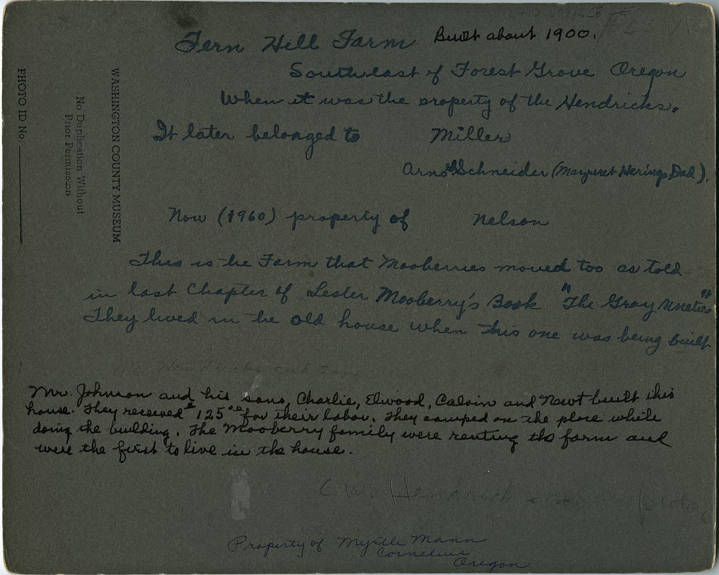 Fern Hill Farm Built about 1900.
Southeast of Forest Grove Oregon
When it was the property of the Hendricks.
It later belonged to Miller
Arno Schneider (Margaret Herings Dad).
Now (1960) property of Nelson
This is the Farm that Mooberries moved too as told
in last Chapter of Lester Mooberry's Book "The Gray Nineties"
They lived in the old house when this one was being built
Mr. Johnson and his sons, Charlie, Elwood, Calvin and Newt built this
house. They received $125.00 for their labor. They camped on the place while
doing the building. The Mooberry family were renting the farm and
were the first to live in the house.
Hendrick
Property of Myrtle Mann
Cornelius
Oregon
WASHINGTON COUNTY MUSEUM
No Duplication Without
Prior Permission
PHOTO ID No.